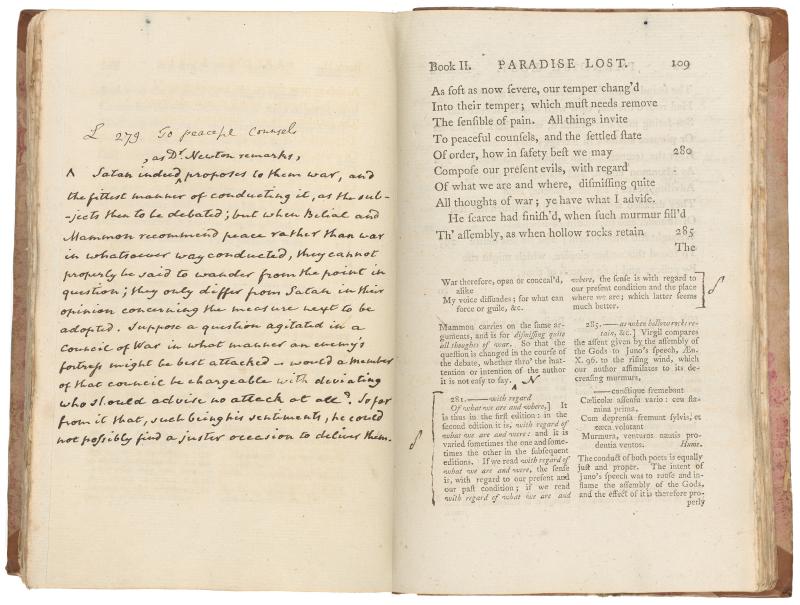 L 279. To peaceful Counsels
, as Dr. Newton remarks,
^ Satan indeed ^ proposes to them war, and
the fittest manner of conducting it, as the sub-
-jects then to be debated; but when Belial and
Mammon recommend peace rather than war
in whatsoever way conducted, they cannot
properly be said to wander from the point in
question; they only differ from Satan in their
opinion concerning the measure next to be
adopted. Suppose a question agitated in a
Council of War in what manner an enemy's
fortress might be best attacked – would a member
of that council be chargeable with deviating
who should advise no attack at all? So far
from it that, such being his sentiments, he could
not possibly find a juster occasion to deliver them.
Book II. PARADISE LOST. 109
As ſoft as now ſevere, our temper chang'd
Into their temper; which muſt needs remove
The ſenſible of pain. All things invite
To peaceful counſels, and the ſettled ſtate
Of order, how in ſafety beſt we may 280
Compoſe our preſent evils, with regard
Of what we are and where, diſmiſſing quite
All thoughts of war; ye have what I adviſe.
He ſcarce had finiſh'd, when ſuch murmur fill'd
Th' aſſembly, as when hollow rocks retain 285
The
War therefore, open or conceal'd,
alike
My voice diſſuades; for what can
force or guile, &c.
Mammon carries on the ſame ar-
guments, and is for diſmiſſing quite
all thoughts of war. So that the
queſtion is changed in the courſe of
the debate, whether thro' the inat-
tention or intention of the author
it is not eaſy to ſay. ^ N
281. —— with regard
Of what we are and where,] It
is thus in the firſt edition: in the
ſecond edition it is, with regard of
what we are and were: and it is
varied ſometimes the one and ſome-
times the other in the ſubſequent
editions. If we read with regard of
what we are and were, the ſenſe
is, with regard to our preſent and
our paſt condition; if we read
with regard of what we are and
where, the ſenſe is with regard to
our preſent condition and the place
where we are; which latter ſeems
much better.
285. —— as when hollow rocks re-
tain, &c.] Virgil compares
the aſſent given by the aſſembly of
the Gods to Juno's ſpeech, Æn.
X. 96. to the riſing wind, which
our author aſſimilates to its de-
creaſing murmurs,
—— cunctique fremebant
Cælicolæ aſſenſu vario: ceu fla-
mina prima.
Cum deprenſa fremunt ſylvis, et
cæca volutant
Murmura, venturos nautis pro-
dentia ventos. Hume.
The conduct of both poets is equally
juſt and proper. The intent of
Juno's ſpeech was to rouſe and in-
flame the aſſembly of the Gods,
and the effect of it is therefore pro-
perly